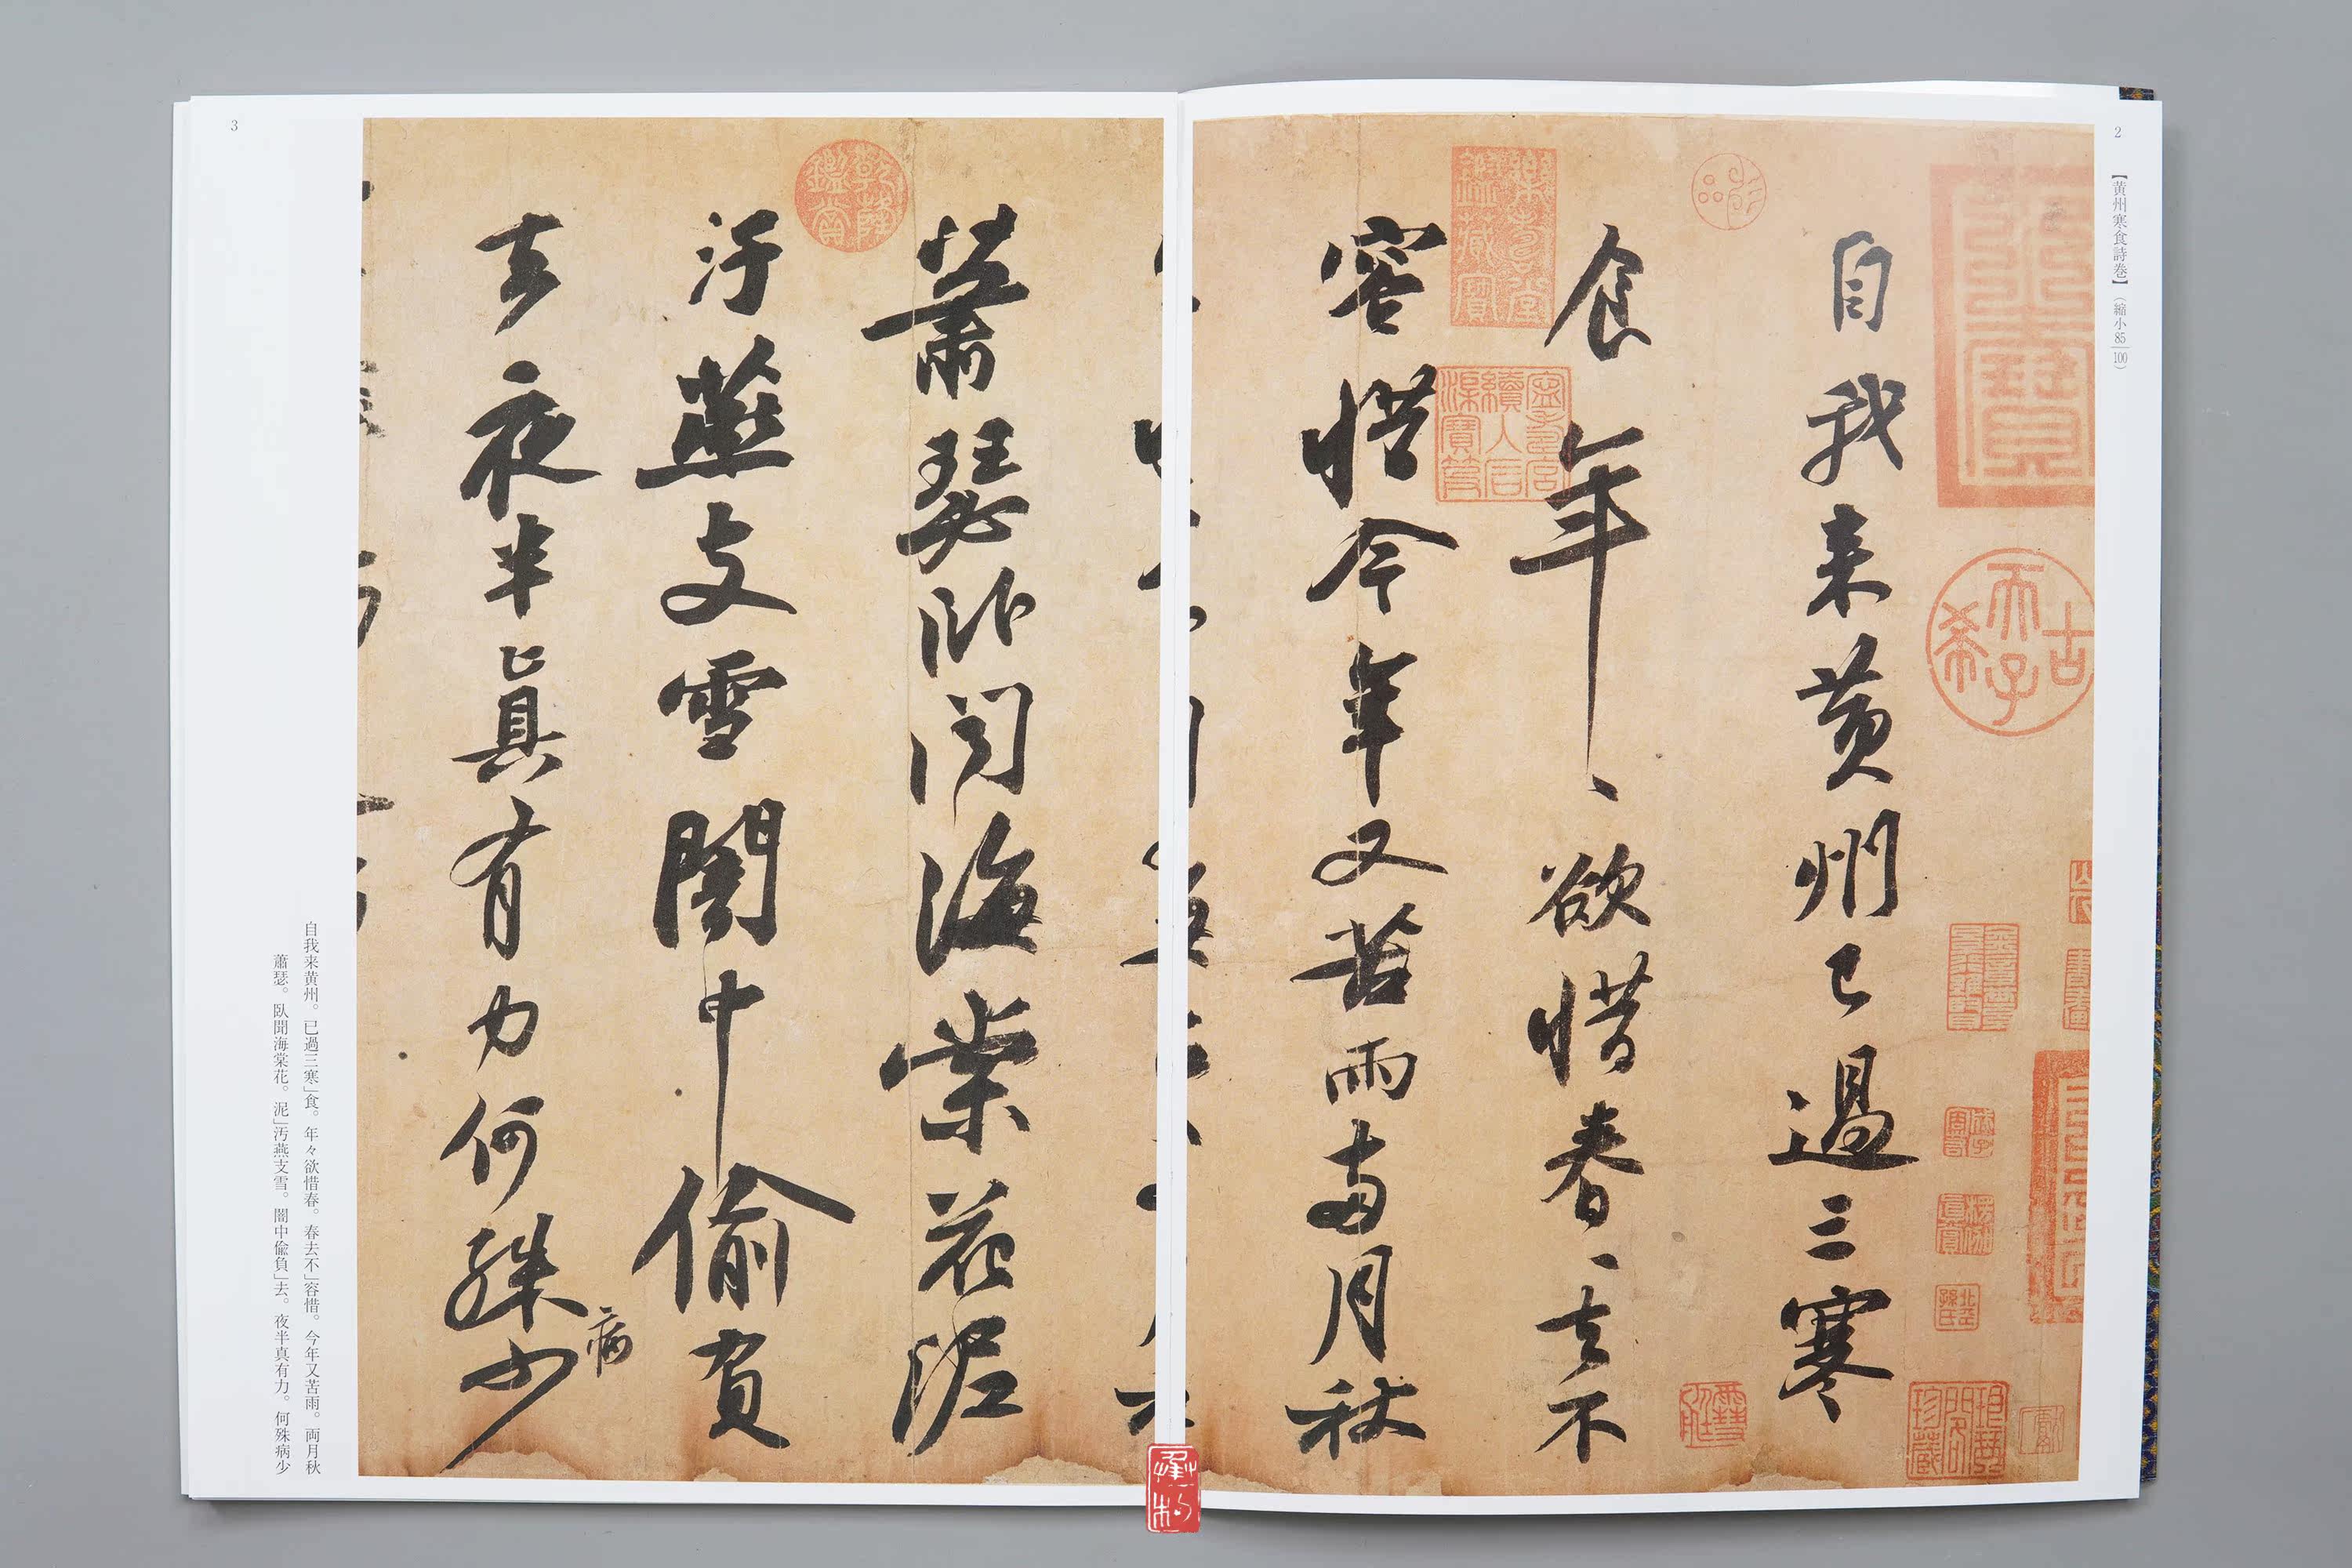 2
【黄州寒食詩巻】（縮小85/100）
自我来黄州已過三寒
食年〻欲惜春〻去不
容惜今年又苦雨兩月秋
蕭瑟卧聞海棠花泥
汙燕支雪闇中偷負
去夜半真有力何殊少
病
古希天子
乾隆鑑賞
樂善堂圖書記
自我来黄州。已過三寒」食。年々欲惜春。春去不」容惜。今年又苦雨。両月秋
蕭瑟。臥聞海棠花。泥」汚燕支雪。闇中偸負」去。夜半真有力。何殊病少
3